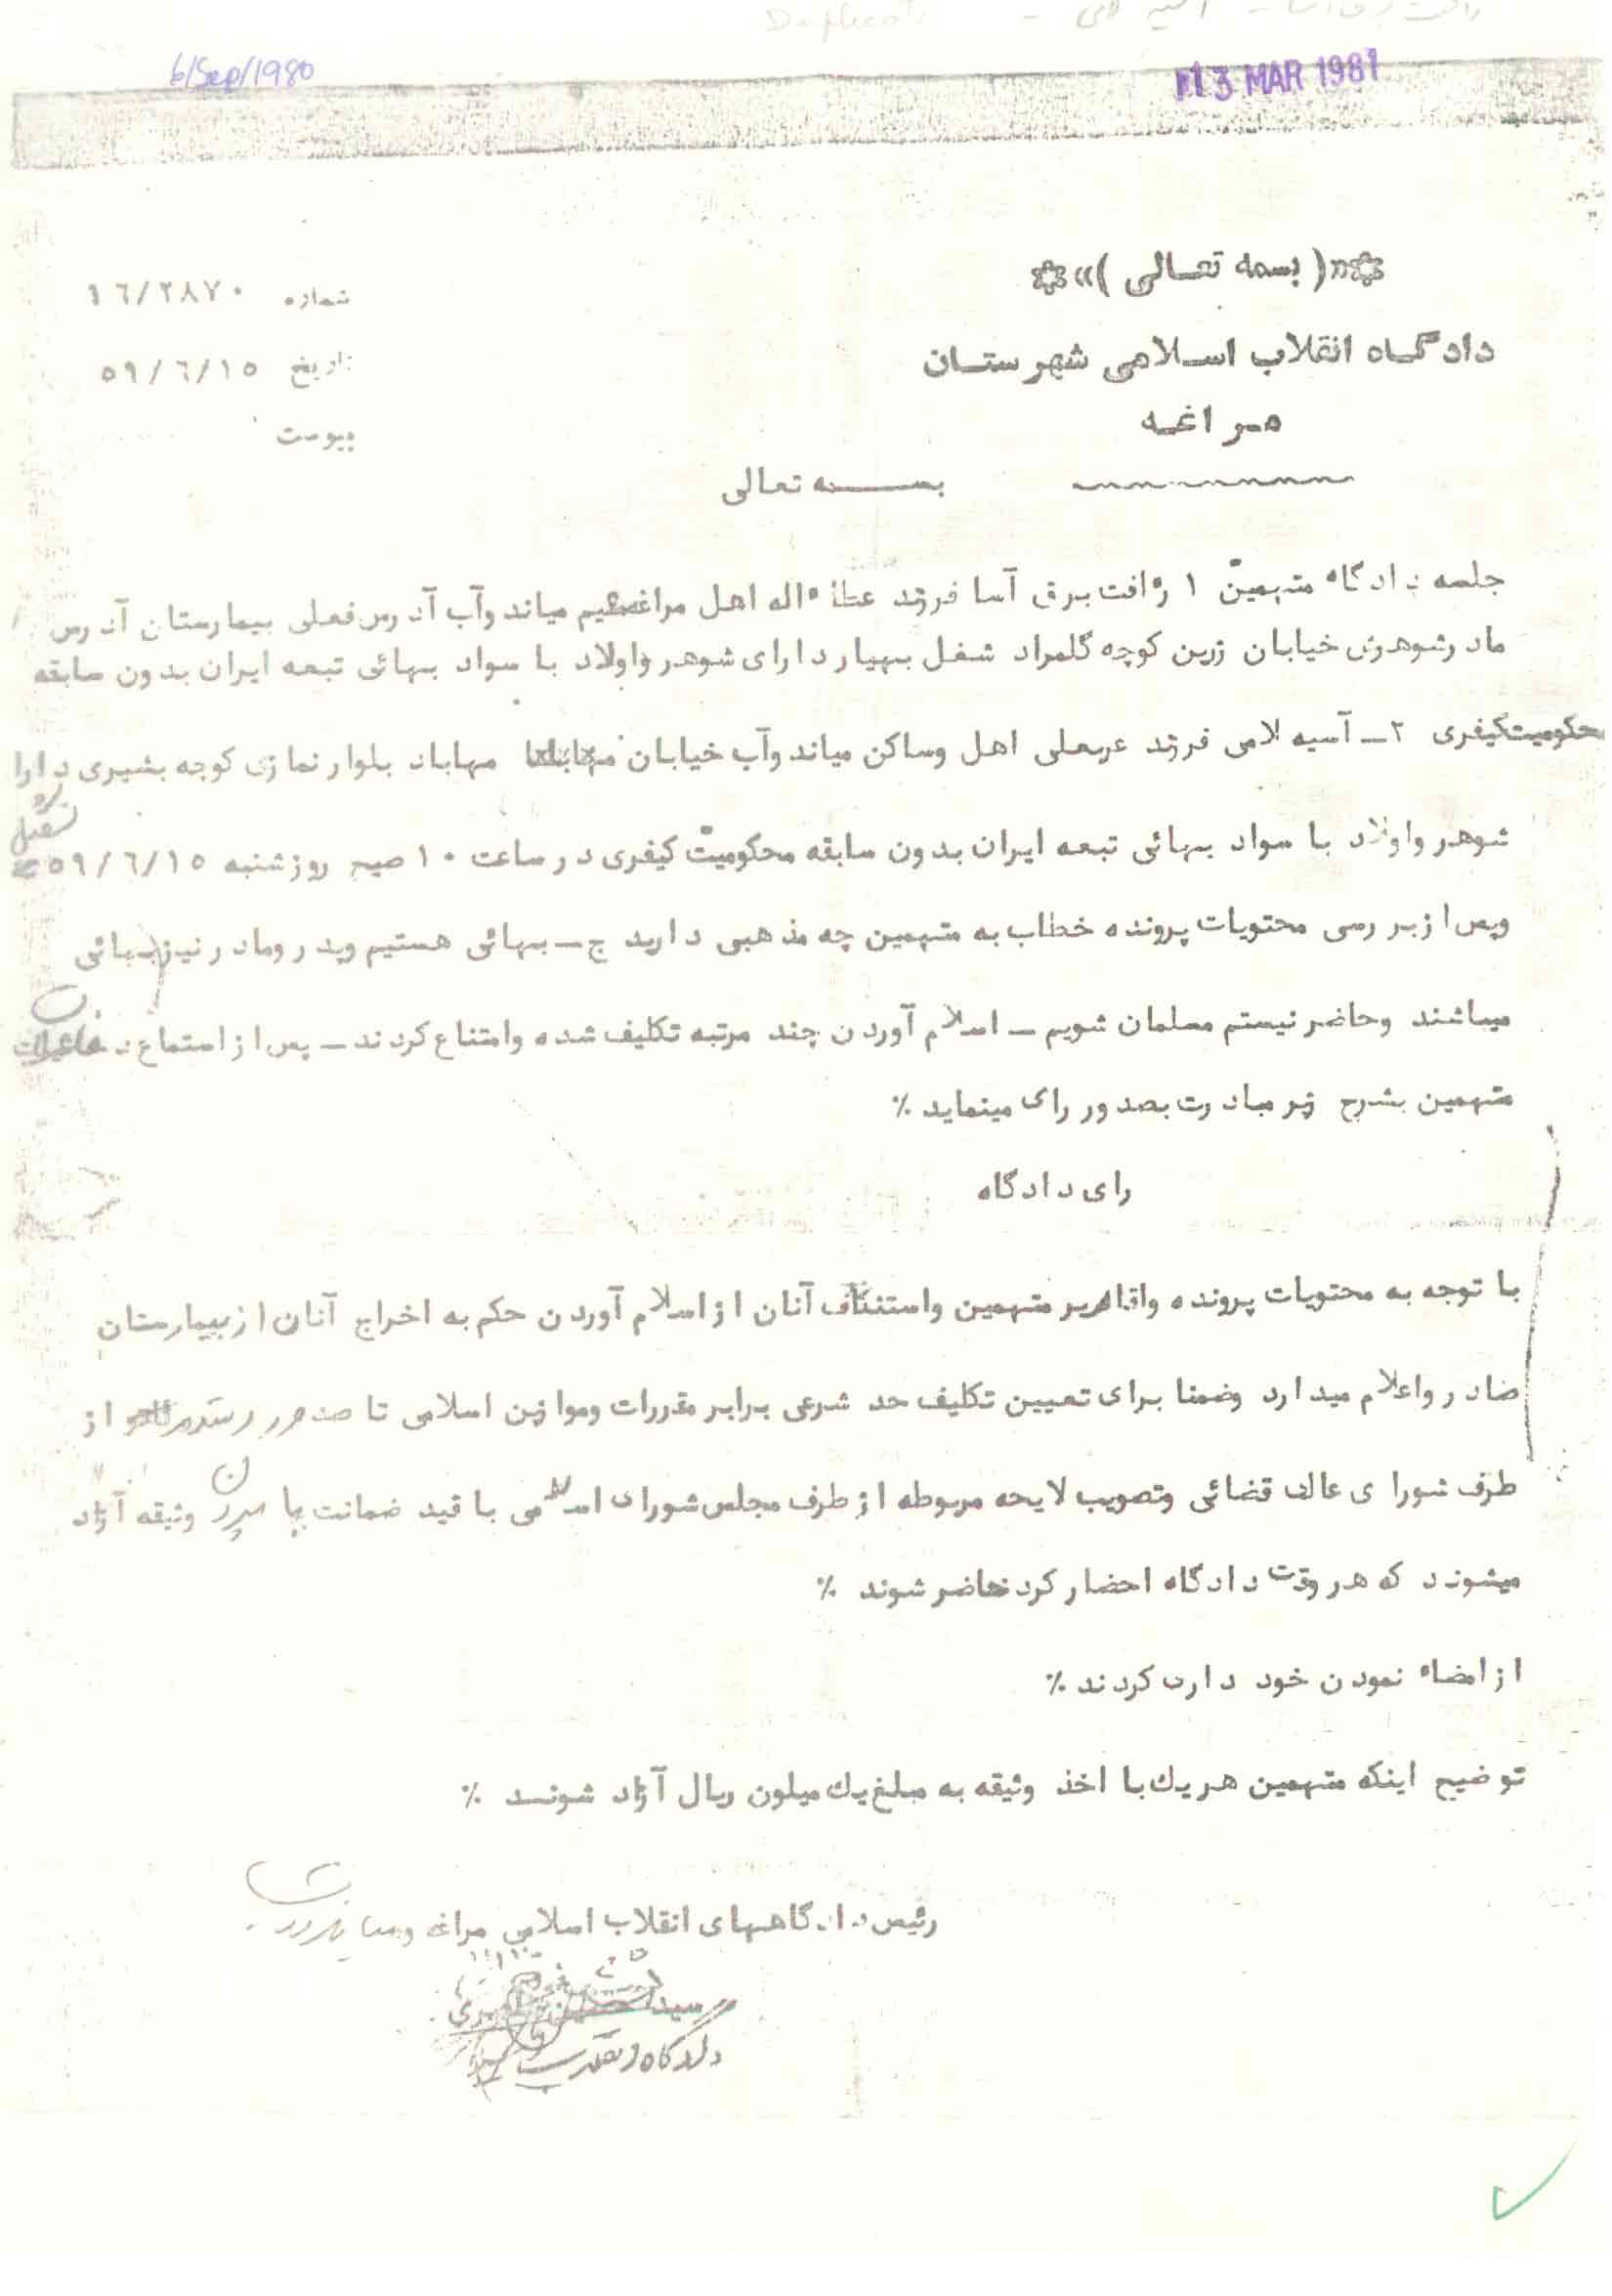 6/Sep/1980
13 MAR 1981
«( بسمه تعالی )»
دادگاه انقلاب اسلامی شهرستان
مراغه
شماره ۱٦/۲۸۷۰
تاریخ ۵۹/٦/۱۵
پیوست
بسمه تعالی
جلسه دادگاه متهمین ۱ رافت برق آسا فرزند عطاء اله اهل مراغه مقیم میاند وآب آدرس فعلی بیمارستان آدرس
مادرشوهرش خیابان زرین کوچه گلمراد شغل بهیار دارای شوهر واولاد با سواد بهائی تبعه ایران بدون سابقه
محکومیت کیفری ۲ـ آسیه لامی فرزند عربعلی اهل وساکن میاند وآب خیابان مهاباد بلوار نمازی کوچه بشیری دارا
شوهر واولاد با سواد بهائی تبعه ایران بدون سابقه محکومیت کیفری در ساعت ۱۰ صبح روزشنبه ۵۹/٦/۱۵ تشکیل
وپس از بررسی محتویات پرونده خطاب به متهمین چه مذهبی دارید ج ـ بهائی هستیم وپدر ومادر نیز بهائی
میباشند وحاضر نیستم مسلمان شویم ـ اسلام آوردن چند مرتبه تکلیف شده وامتناع کردند ـ پس از استماع دفاعیات
متهمین بشرح زیر مبادرت بصدور رای مینماید ٪
رای دادگاه
با توجه به محتویات پرونده واقاریر متهمین واستنکاف آنان از اسلام آوردن حکم به اخراج آنان از بیمارستان
صادر واعلام میدارد وضمنا برای تعیین تکلیف حد شرعی برابر مقررات وموازین اسلامی تا صدور از
طرف شورای عالی قضائی وتصویب لایحه مربوطه از طرف مجلس شورای اسلامی با قید ضمانت یا وثیقه آزاد
میشوند که هر وقت دادگاه احضار کرد حاضر شوند ٪
از امضاء نمودن خود داری کردند ٪
توضیح اینکه متهمین هریك با اخذ وثیقه به مبلغ یك میلون ریال آزاد شونـد ٪
رئیس دادگاههای انقلاب اسلامی مراغه و
سید
دادگاه انقلاب